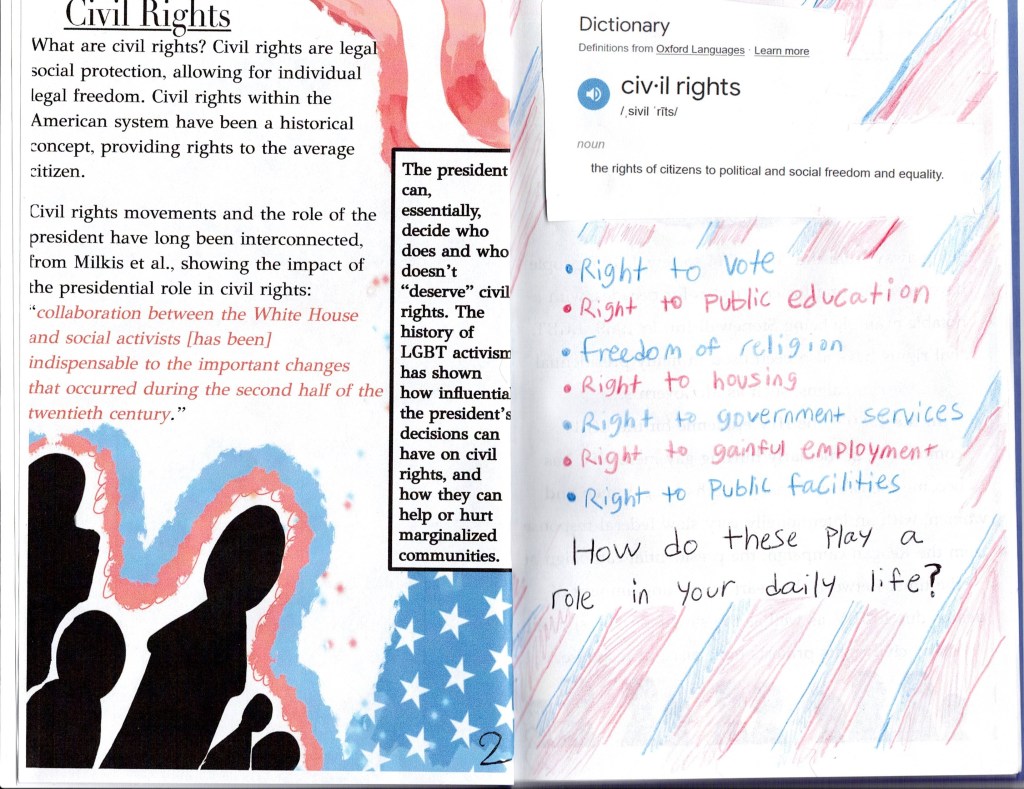 Civil Rights
What are civil rights? Civil rights are legal
social protection, allowing for individual
legal freedom. Civil rights within the
American system have been a historical
concept, providing rights to the average
citizen.
Civil rights movements and the role of the
president have long been interconnected,
from Milkis et al., showing the impact of
the presidential role in civil rights:
“collaboration between the White House
and social activists [has been]
indispensable to the important changes
that occurred during the second half of the
twentieth century.”
The president
can,
essentially,
decide who
does and who
doesn’t
“deserve” civil
rights. The
history of
LGBT activism
has shown
how influential
the president’s
decisions can
have on civil
rights, and
how they can
help or hurt
marginalized
communities.
2
Dictionary
Definitions from Oxford Languages · Learn more
civ·il rights
/ˌsivil ˈrīts/
noun
the rights of citizens to political and social freedom and equality.
• Right to vote
• Right to public education
• Freedom of religion
• Right to housing
• Right to government services
• Right to gainful employment
• Right to public facilities
How do these play a
role in your daily life?